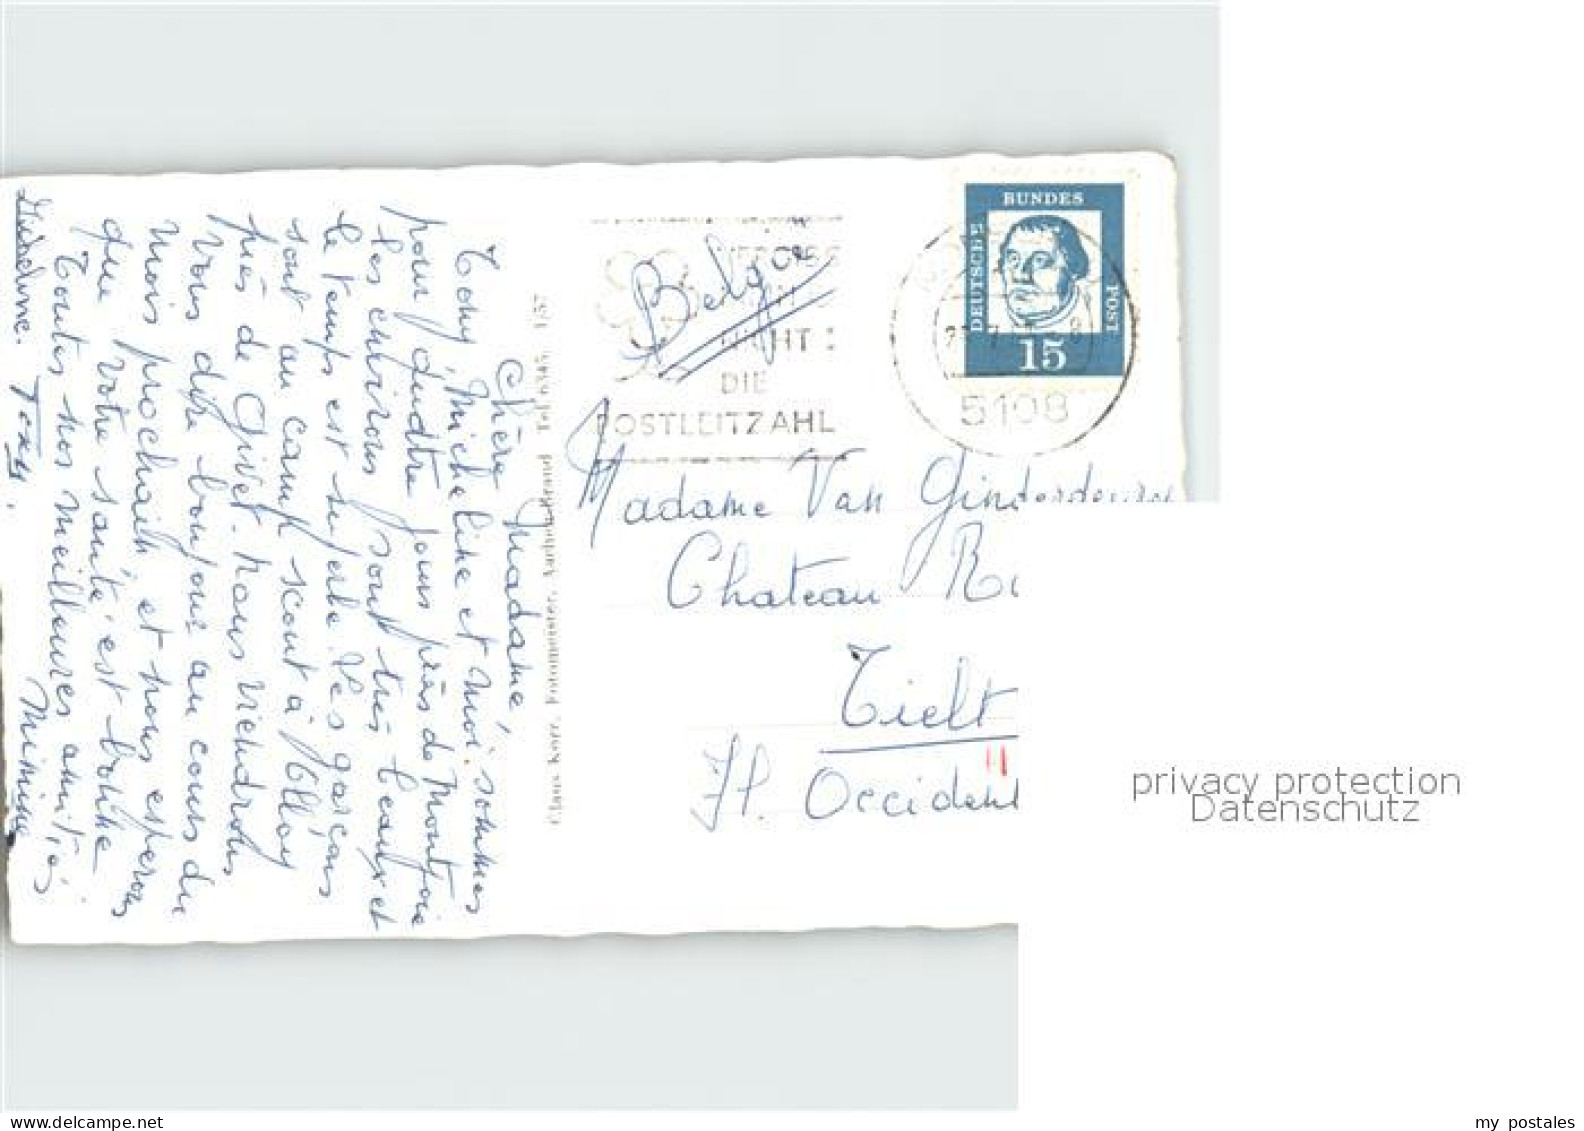 Chère Madame,
Tony, Micheline et moi sommes
pour quatre jours près de Montjoie
les environs sont très beaux et
le temps est superbe. Les garçons
sont au camp scout à Olloy
près de Givet. Nous viendrons
vous dire bonjour au cours du
mois prochain et nous espérons
que votre santé est bonne
Toutes nos meilleures amitiés
Mimine
Tony.
Claus Koer, Fotomeister, Aachen-Brand Tel. 6345 1/57
Belgique
NICHT:
DIE
POSTLEITZAHL
5108
DEUTSCHE
BUNDES
POST
15
Madame Van
Chateau
Tielt
Fl. Occident
privacy protection
Datenschutz
my postales